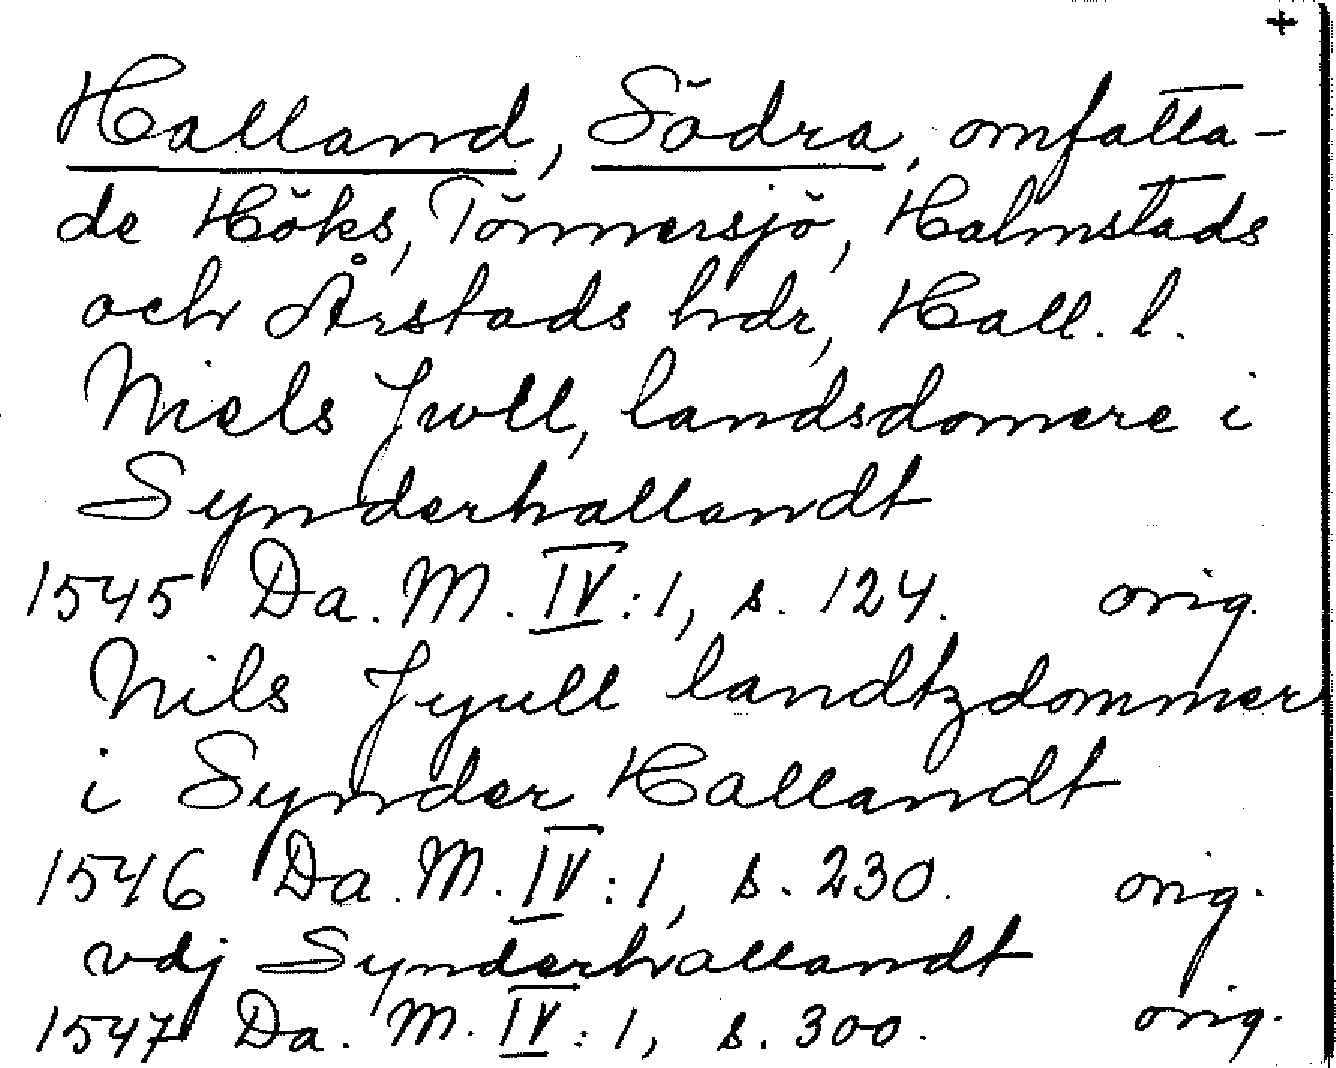 +
Halland, Södra, omfatta-
de Höks, Tönnersjö, Halmstads
och Årstads hdr, Hall. l.
Niels Jwll, landsdomere i
Synderhallandt
1545 Da. M. IV:1, s. 124. orig.
Nils Jyull landtzdommere
i Synder Hallandt
1546 Da. M. IV:1, s. 230. orig.
vdj Synderhallandt
1547 Da. M. IV:1, s. 300. orig.